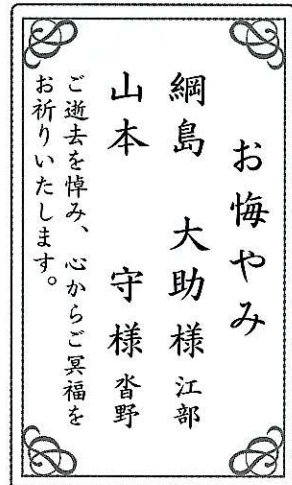 お悔やみ
綱島 大助様 江部
山本 守様 沓野
ご逝去を悼み、心からご冥福を
お祈りいたします。